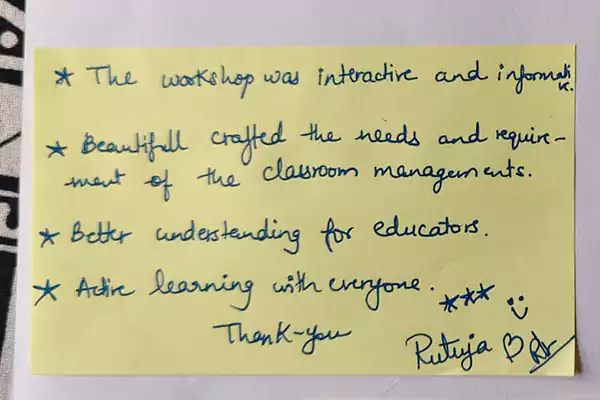 * The workshop was interactive and informatik.
* Beautifull crafted the needs and require-
ment of the classroom managements.
* Better understanding for educators.
* Active learning with everyone.
*** :)
Thank-you
Rutuja B